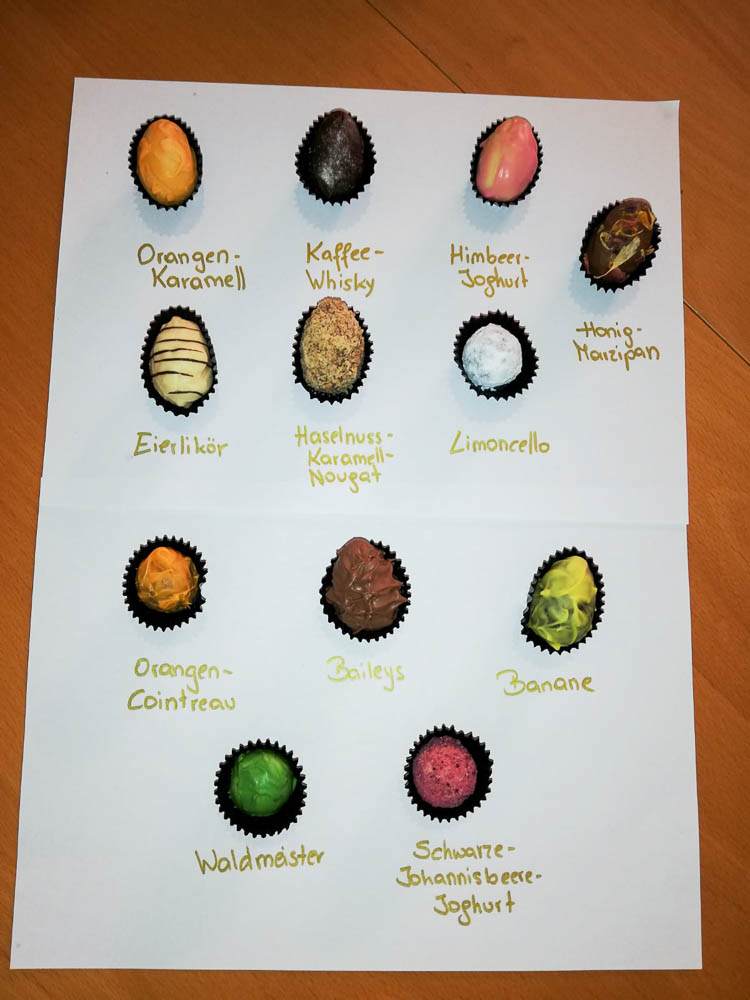 Orangen-
Karamell
Kaffee-
Whisky
Himbeer-
Joghurt
Honig-
Marzipan
Eierlikör
Haselnuss-
Karamell-
Nougat
Limoncello
Orangen-
Cointreau
Baileys
Banane
Waldmeister
Schwarze-
Johannisbeere-
Joghurt